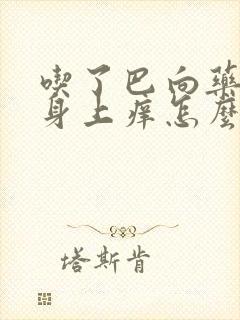 喫了巴向藥
身上癢怎麼
塔斯肯